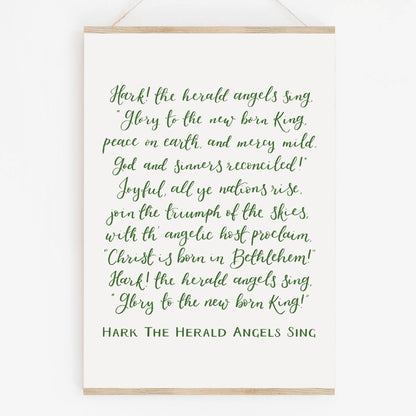 Hark! the herald angels sing,
"Glory to the new born King,
peace on earth, and mercy mild,
God and sinners reconciled!"
Joyful, all ye nations rise,
join the triumph of the skies,
with th' angelic host proclaim,
"Christ is born in Bethlehem!"
Hark! the herald angels sing,
"Glory to the new born King!"
HARK THE HERALD ANGELS SING